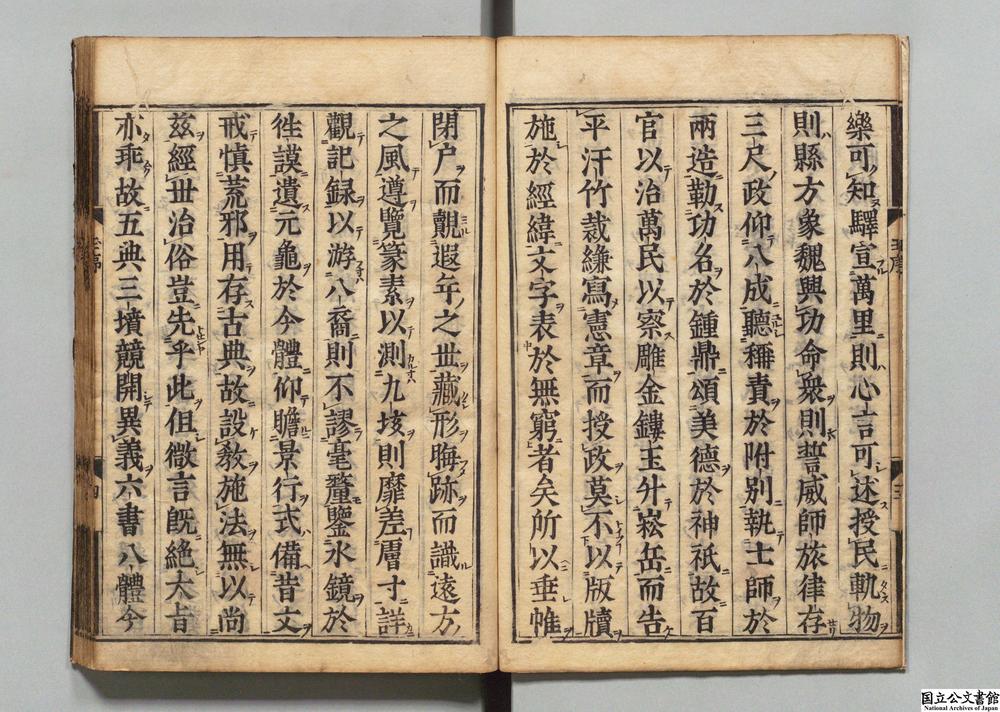 樂可知驛宣萬里則心言可述授民軌物
則縣方象魏興功命衆則誓威師旅律存
三尺政仰八成聽稱責於附別執士師於
兩造勒功名於鍾鼎頌美德於神祇故百
官以治萬民以察雕金鏤玉升崧岳而告
平汗竹裁縑寫憲章而授政莫不以版牘
施於經緯文字表於無窮者矣所以垂帷
閉户而覿遐年之世藏形晦跡而識遠方
之風遵覽篆素以測九垓則靡差膚寸詳
觀記録以游八裔則不謬毫釐鑒水鏡於
徃謨遺元龜於今體仰瞻景行式備昔文
戒慎荒邪用存古典故設敎施法無以尚
兹經丗治俗豈先乎此但微言旣絶大旨
亦乖故五典三墳競開異義六書八體今
玉序
三
玉序
四
国立公文書館
National Archives of Japan